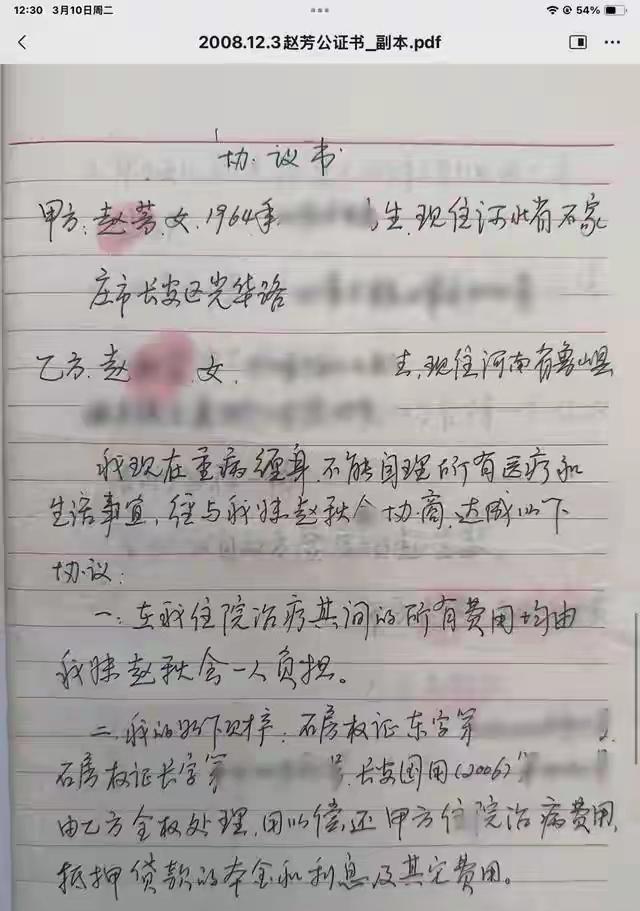 12:30 3月10日周二
54%
2008.12.3赵芳公证书_副本.pdf
协议书
甲方:赵芳,女,1964年 生,现住河北省石家
庄市长安区光华路
乙方:赵 女, 生,现住河南省鲁山县
我现在重病缠身,不能自理所有医疗和
生活事宜,经与我妹赵秋 协商,达成以下
协议:
一:在我住院治疗其间的所有费用均由
我妹赵秋会一人负担。
二、我的如下财产:石房权证东字第
石房权证长字第 号、长安国用(2006)
由乙方全权处理,用以偿还甲方住院治病费用,
抵押贷款的本金和利息及其它费用。